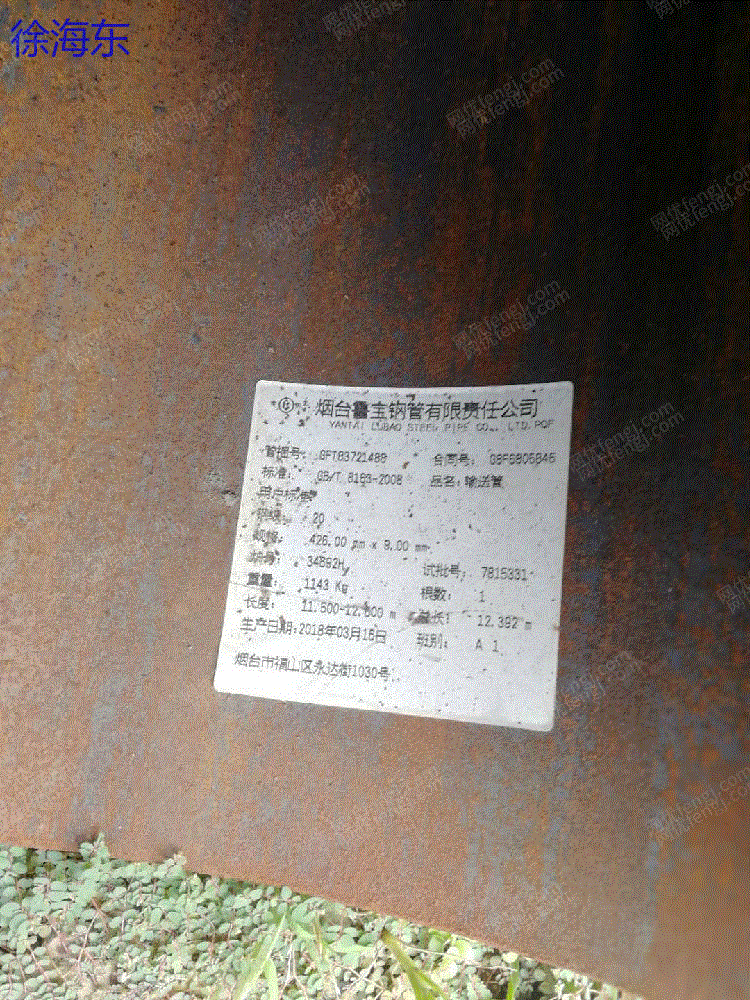 徐海东
烟台鲁宝钢管有限责任公司
YANTAI LUBAO STEEL PIPE CO., LTD. PQF
管捆号: GFT83721488 合同号: G8F6806646
标准: GB/T 8163-2008 品名: 输送管
用户标准
20
规格: 426.00 mm x 9.00 mm
34682Hy 试批号: 7815331
重量: 1143 Kg 根数: 1
长度: 11.500-12.500 m 总长: 12.392 m
生产日期:2018年03月15日 班别: A 1
烟台市福山区永达街1030号
网优fengj.com
网优fengj.com
网优fengj.com
网优fengj.com